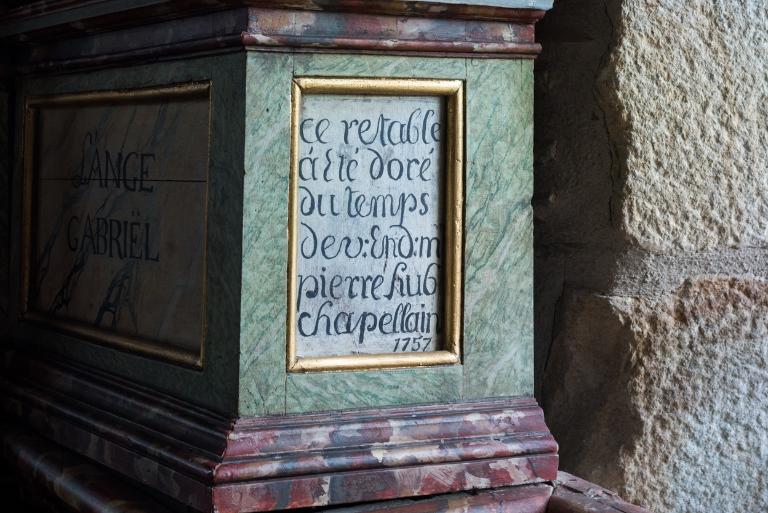 L'ANGE
GABRIËL
ce retable
á été doré
du temps
de v: End: m
pierre hub
chapellain
1757